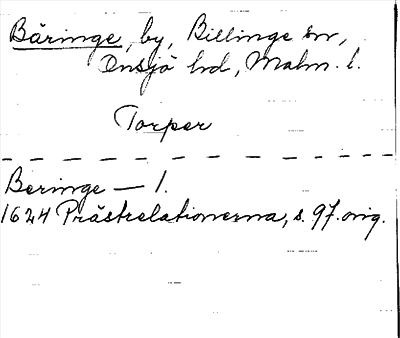 Bäringe, by, Billinge sn,
Onsjö hd, Malm. l.
Torper
Beringe — 1.
1624 Prästrelationerna, s. 97. orig.